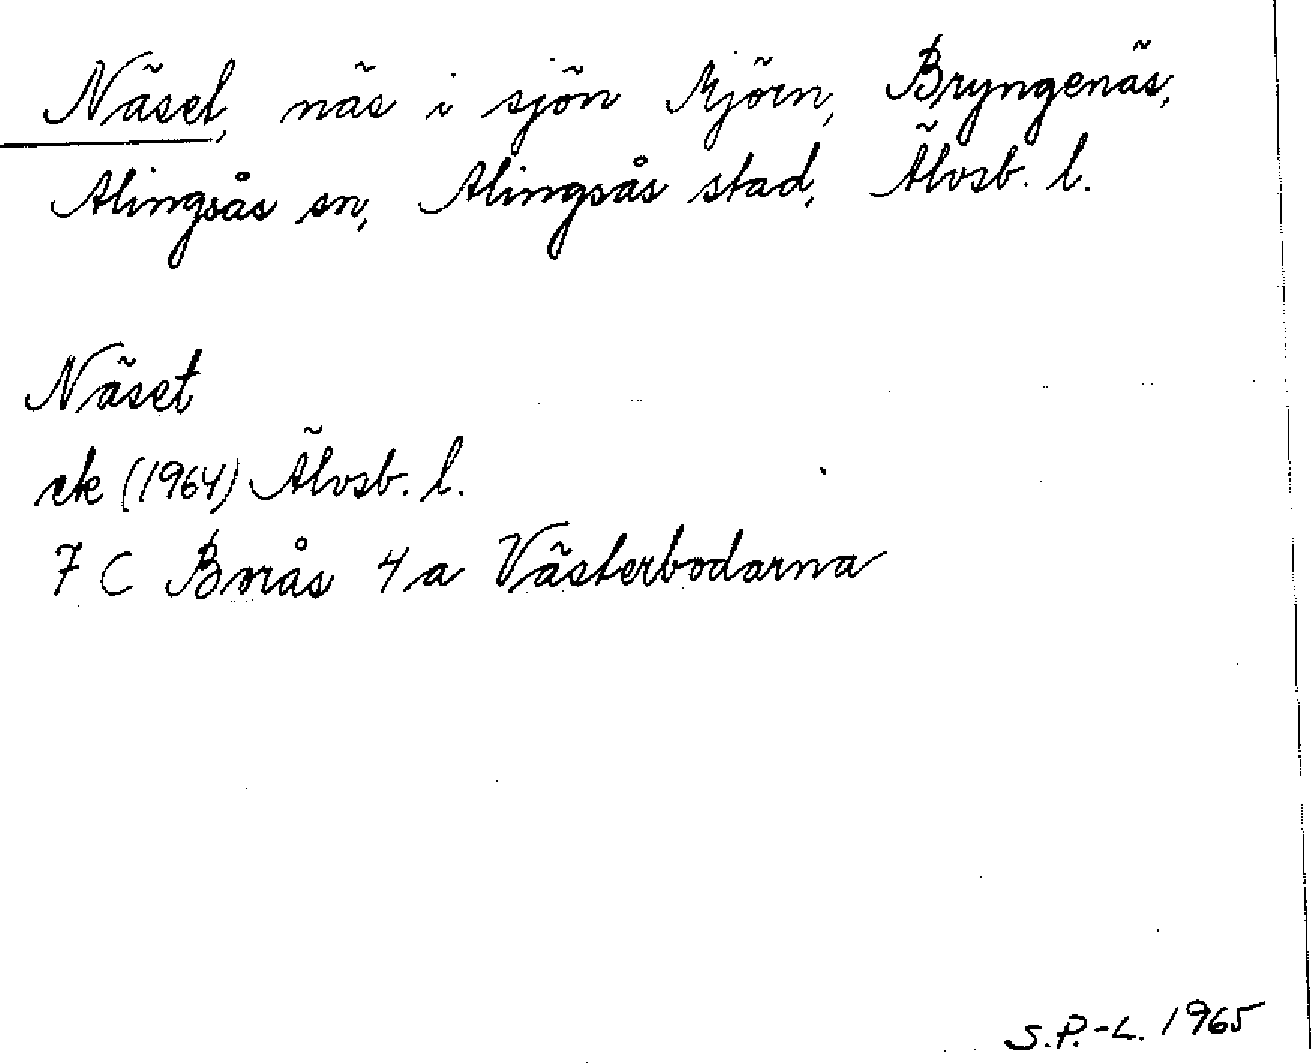 Näset, näs i sjön Mjörn, Bryngenäs,
Alingsås sn, Alingsås stad, Älvsb. l.
Näset
ek (1964) Älvsb. l.
7 C Borås 4 a Västerbodarna
S.P.-L. 1965